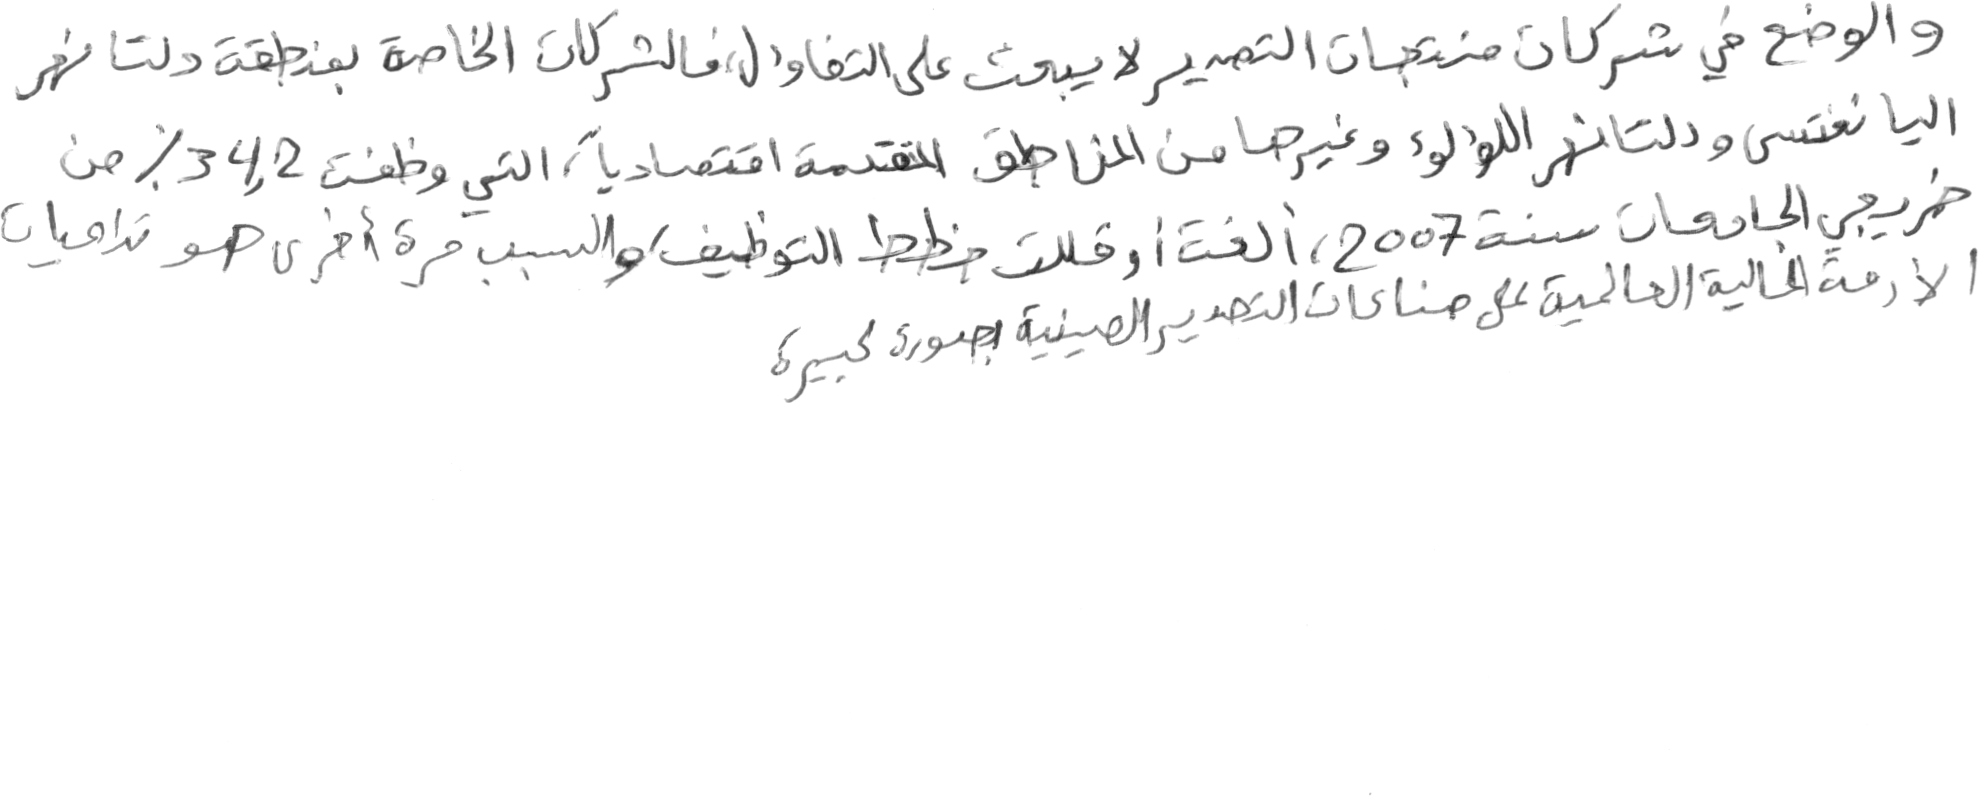 والوضع في شركات منتجات التصدير لا يبعث على التفاؤل، فالشركات الخاصة بمنطقة دلتا نهر
اليانغتسى ودلتا نهر اللؤلوء وغيرها من المناطق المتقدمة اقتصادياً، التي وظفت 34,2٪ من
خريجي الجامعات سنة 2007، ألغت أو قللت خطط التوظيف، والسبب مرة أخرى هو تداعيات
الازمة المالية العالمية على صناعات التصدير الصينية بصورة كبيرة